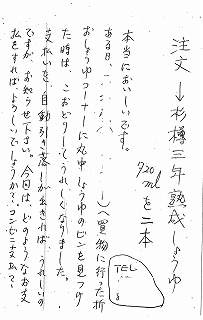 注文→杉樽三年熟成しょうゆ
720mlを二本
本当においしいです。
ある日、・・・・・)へ買物に行った折
おしょうゆコーナーに丸中しょうゆのビンを見つけ
た時は、こおどりして、うれしくなりました。
支払いを、自動引き落しが出きれば、うれしいの
ですが、お知らせ下さい。今回は、どのようなお支
払をすれば、よろしいでしょうか?コンビニ支払?
TEL